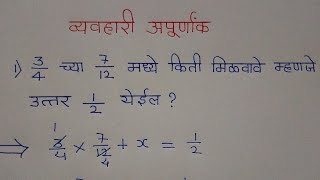 व्यवहारी अपूर्णांक
१) 3/4 च्या 7/12 मध्ये किती मिळवावे म्हणजे
उत्तर 1/2 येईल ?
⇒ 1 3/4 × 7/12 4 + x = 1/2